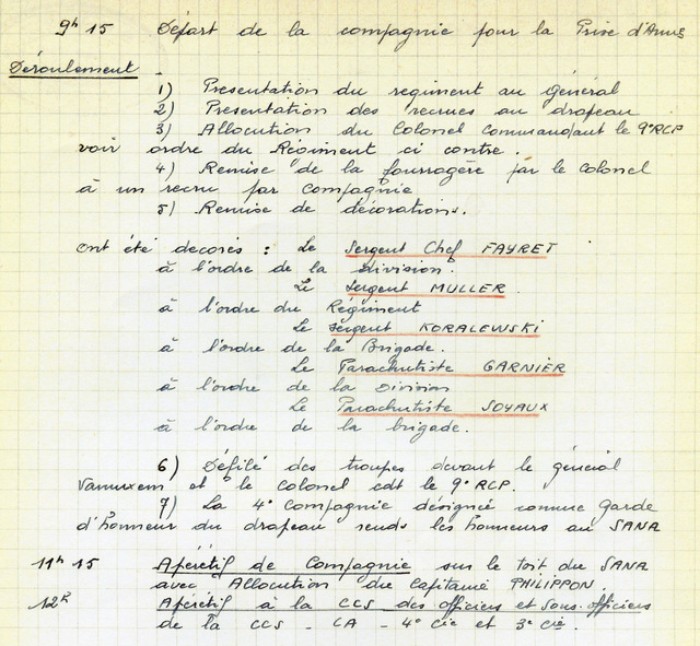 9h 15 Départ de la compagnie pour la Prise d'Armes
Déroulement.
1) Présentation du régiment au général
2) Présentation des recrues au drapeau
3) Allocution du Colonel commandant le 9e RCP
voir ordre du Régiment ci contre.
4) Remise de la fourragère par le colonel
à un recru par compagnie
5) Remise de décorations.
ont été decorés : Le Sergent Chef FAYRET
à l'ordre de la division.
Le Sergent MULLER.
à l'ordre du Régiment
Le Sergent KORALEWSKI
à l'ordre de la Brigade.
Le Parachutiste GARNIER
à l'ordre de la Division
Le Parachutiste SOYAUX
à l'ordre de la brigade.
6) Défilé des troupes devant le général
Vanuxem et le colonel cdt le 9e RCP.
7) La 4e compagnie désignée comme garde
d'honneur du drapeau rends les honneurs au SANA
11h 15 Apéritif de Compagnie sur le toit du SANA
avec Allocution du Capitaine PHILIPPON.
12h Apéritif à la CCS des officiers et sous-officiers
de la CCS - CA - 4e Cie et 3e Cie.